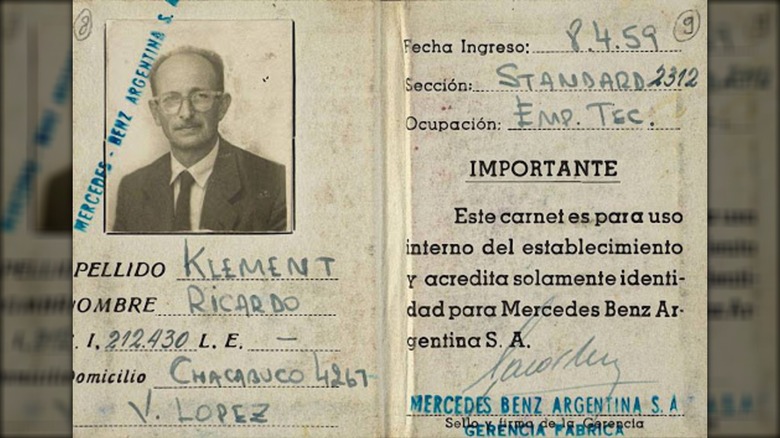 8
MERCEDES - BENZ ARGENTINA S. A.
PELLIDO KLEMENT
OMBRE RICARDO
. I. 212.430 L. E. —
Domicilio CHACABUCO 4267
V. LOPEZ
9
Fecha Ingreso: 8.4.59
Sección: STANDARD 2312
Ocupación: EMP. TEC.
IMPORTANTE
Este carnet es para uso
interno del establecimiento
y acredita solamente identi-
dad para Mercedes Benz Ar-
gentina S. A.
MERCEDES BENZ ARGENTINA S. A
Sello y firma de la Gerencia
GERENCIA FABRICA